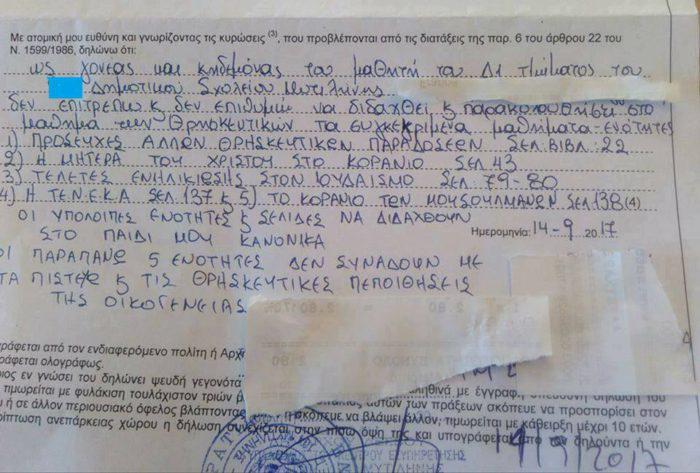 Με ατομική μου ευθύνη και γνωρίζοντας τις κυρώσεις (3), που προβλέπονται από τις διατάξεις της παρ. 6 του άρθρου 22 του
Ν. 1599/1986, δηλώνω ότι:
ως γονέας και κηδεμόνας του μαθητή του Δ1 τμήματος του
Δημοτικού Σχολείου Μυτιλήνης
δεν επιτρέπω κ δεν επιθυμώ να διδαχθεί ς παρακολουθήσει στο
μάθημα των Θρησκευτικών τα συγκεκριμένα μαθήματα-ενότητες
1) ΠΡΟΣΕΥΧΕΣ ΑΛΛΩΝ ΘΡΗΣΚΕΥΤΙΚΩΝ ΠΑΡΑΔΟΣΕΩΝ ΣΕΛ. ΒΙΒΛ.: 22
2) Η ΜΗΤΕΡΑ ΤΟΥ ΧΡΙΣΤΟΥ ΣΤΟ ΚΟΡΑΝΙΟ ΣΕΛ 43
3) ΤΕΛΕΤΕΣ ΕΝΗΛΙΚΙΩΣΗΣ ΣΤΟΝ ΙΟΥΔΑΙΣΜΟ ΣΕΛ. 79-80
4) Η ΤΕ.Ν.Ε.Κ.Α ΣΕΛ. 137 ς 5) ΤΟ ΚΟΡΑΝΙΟ ΤΩΝ ΜΟΥΣΟΥΛΜΑΝΩΝ ΣΕΛ 138 (4)
ΟΙ ΥΠΟΛΟΙΠΕΣ ΕΝΟΤΗΤΕΣ ς ΣΕΛΙΔΕΣ ΝΑ ΔΙΔΑΧΘΟΥΝ
ΣΤΟ ΠΑΙΔΙ ΜΟΥ ΚΑΝΟΝΙΚΑ
Ημερομηνία: 14-9 2017
ΟΙ ΠΑΡΑΠΑΝΩ 5 ΕΝΟΤΗΤΕΣ ΔΕΝ ΣΥΝΑΔΟΥΝ ΜΕ
ΤΑ ΠΙΣΤΕΥΩ ς ΤΙΣ ΘΡΗΣΚΕΥΤΙΚΕΣ ΠΕΠΟΙΘΗΣΕΙΣ
ΤΗΣ ΟΙΚΟΓΕΝΕΙΑΣ
ράφεται από τον ενδιαφερόμενο πολίτη ή Αρχ
ράφεται ολογράφως.
οιος εν γνώσει του δηλώνει ψευδή γεγονότα
ληθινά με έγγραφ. υπεύθυνη δήλωση του
τιμωρείται με φυλάκιση τουλάχιστον τριών
αυτών των πράξεων σκόπευε να προσπορίσει στον
υ ή σε άλλον περιουσιακό όφελος βλάπτοντας
ή σκόπευε να βλάψει άλλον, τιμωρείται με κάθειρξη μέχρι 10 ετών.
ρίπτωση ανεπάρκειας χώρου η δήλωση συνεχίζεται στην πίσω όψη της και υπογράφεται από τον δηλούντα ή την
ΕΞΥΠΗΡΕΤΗΣΗΣ
ΜΥΤΙΛΗΝΗΣ
14/9/2017